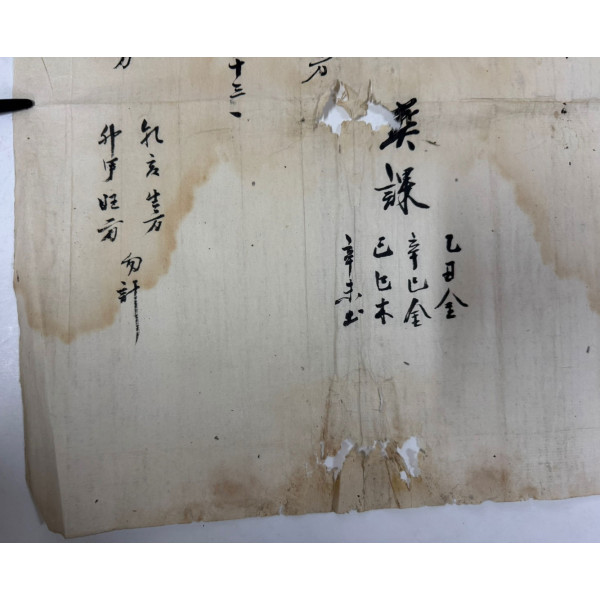 葬課
乙丑金
辛巳金
己巳木
辛未土
方
十三一
乾亥生方勿計
方
卯甲旺方